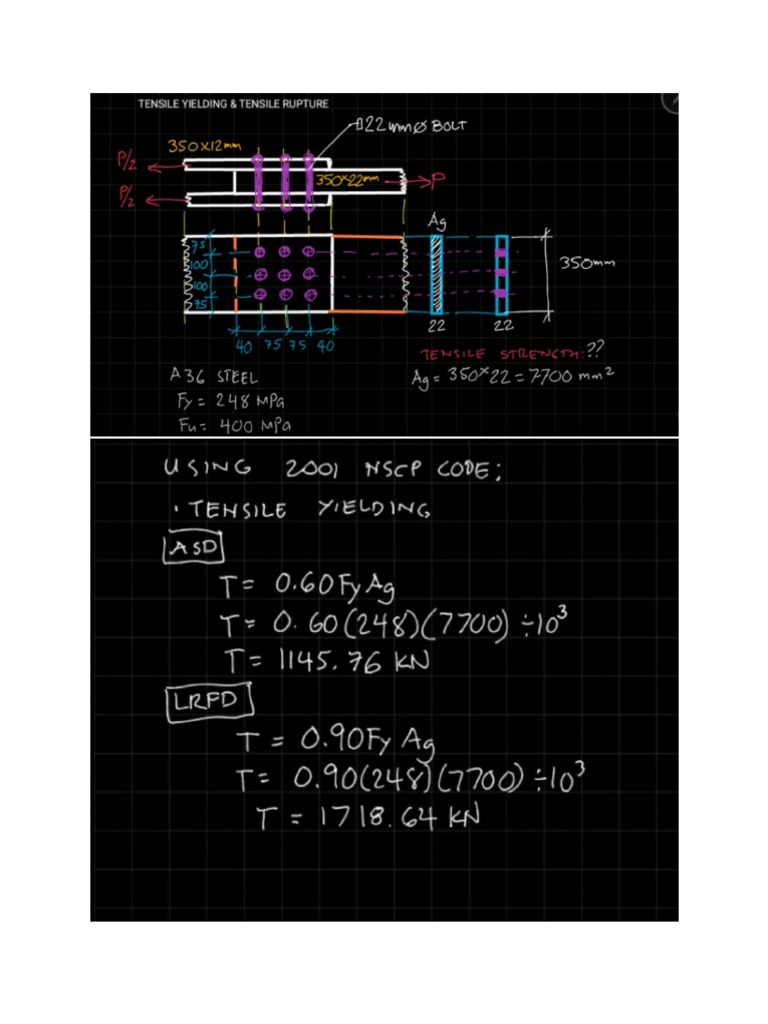 TENSILE YIELDING & TENSILE RUPTURE
22mmØ BOLT
350x12mm
P/2
350x22mm
P
P/2
Ag
75
100
100
75
350mm
22
22
40
75
75
40
TENSILE STRENGTH: ??
A36 STEEL
Ag = 350x22 = 7700 mm²
Fy = 248 MPa
Fu = 400 MPa
USING 2001 NSCP CODE;
• TENSILE YIELDING
ASD
T = 0.60FyAg
T = 0.60(248)(7700) ÷10³
T = 1145.76 KN
LRFD
T = 0.90Fy Ag
T = 0.90(248)(7700) ÷10³
T = 1718.64 KN